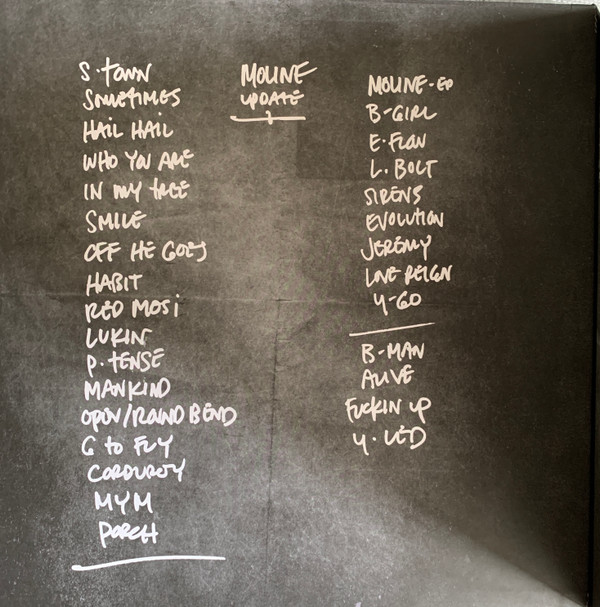 S. TOWN
SOMETIMES
HAIL HAIL
WHO YOU ARE
IN MY TREE
SMILE
OFF HE GOES
HABIT
RED MOSi
LUKIN
P. TENSE
MANKIND
OPEN/ROUND BEND
G to FLY
CORDUROY
MYM
PORCH
MOLINE
UPDATE
MOLINE-ED
B-GIRL
E. FLOW
L. BOLT
SIRENS
EVOLUTION
JEREMY
LOVE REIGN
Y-GO
B-MAN
ALIVE
FUCKIN UP
Y. LED